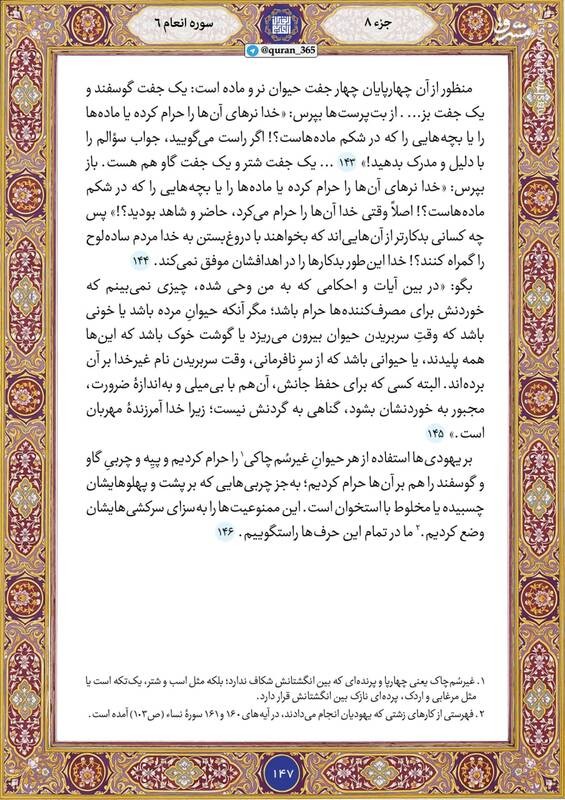 جزء ۸
سوره انعام ۶
@quran_365
منظور از آن چهارپایان چهار جفت حیوان نر و ماده است: یک جفت گوسفند و
یک جفت بز... . از بت‌پرست‌ها بپرس: «خدا نرهای آن‌ها را حرام کرده یا ماده‌ها
را یا بچه‌هایی را که در شکم ماده‌هاست؟! اگر راست می‌گویید، جواب سؤالم را
با دلیل و مدرک بدهید!» ۱۴۳ ... یک جفت شتر و یک جفت گاو هم هست. باز
بپرس: «خدا نرهای آن‌ها را حرام کرده یا ماده‌ها را یا بچه‌هایی را که در شکم
ماده‌هاست؟! اصلاً وقتی خدا آن‌ها را حرام می‌کرد، حاضر و شاهد بودید؟!» پس
چه کسانی بدکارتر از آن‌هایی‌اند که بخواهند با دروغ‌بستن به خدا مردم ساده‌لوح
را گمراه کنند؟! خدا این‌طور بدکارها را در اهدافشان موفق نمی‌کند. ۱۴۴
بگو: «در بین آیات و احکامی که به من وحی شده، چیزی نمی‌بینم که
خوردنش برای مصرف‌کننده‌ها حرام باشد؛ مگر آنکه حیوانِ مرده باشد یا خونی
باشد که وقتِ سربریدن حیوان بیرون می‌ریزد یا گوشت خوک باشد که این‌ها
همه پلیدند، یا حیوانی باشد که از سرِ نافرمانی، وقت سربریدن نام غیرخدا بر آن
برده‌اند. البته کسی که برای حفظ جانش، آن‌هم با بی‌میلی و به‌اندازهٔ ضرورت،
مجبور به خوردنشان بشود، گناهی به گردنش نیست؛ زیرا خدا آمرزندهٔ مهربان
است.» ۱۴۵
بر یهودی‌ها استفاده از هر حیوانِ غیرسُم‌چاکی۱ را حرام کردیم و پیِه و چربیِ گاو
و گوسفند را هم بر آن‌ها حرام کردیم؛ به‌جز چربی‌هایی که بر پشت و پهلوهایشان
چسبیده یا مخلوط با استخوان است. این ممنوعیت‌ها را به‌سزای سرکشی‌هایشان
وضع کردیم.۲ ما در تمام این حرف‌ها راستگوییم. ۱۴۶
۱. غیرسُم‌چاک یعنی چهارپا و پرنده‌ای که بین انگشتانش شکاف ندارد؛ بلکه مثل اسب و شتر، یک‌تکه است یا
مثل مرغابی و اردک، پرده‌ای نازک بین انگشتانش قرار دارد.
۲. فهرستی از کارهای زشتی که یهودیان انجام می‌دادند، در آیه‌های ۱۶۰ و ۱۶۱ سورهٔ نساء (ص۱۰۳) آمده است.
۱۴۷